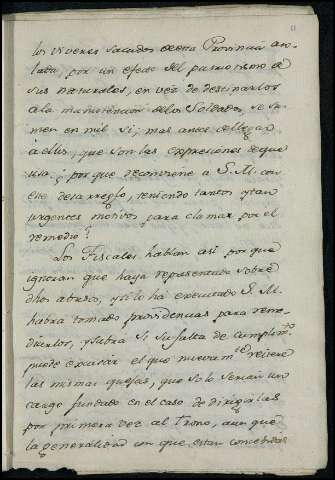 los viveres sacados de esta Provincia aso-
lada, por un efecto del patriotismo de
sus naturales, en vez de destinarlos
a la manutencion de los Soldados, se su-
men en mil si; mas antes de llegar
à ellos, que son las expresiones de que
usa; por que reconviene à S. M. con
este desarreglo, teniendo tantos y tan
urgentes motivos para clamar por el
remedio?
Los Fiscales hablan asi por que
ignoran que haya representado sobre
dhos abusos, y si lo ha executado S. M.
habrà tomado providencias para reme-
diarlos, y sobre si su falta de cumplim.to
puede excusar el que nuevam.te reitere
las mismas quejas, que solo serian un
cargo fundado en el caso de dirigirlas
por primera vez al Trono, aunque
la generalidad con que estan concebidas